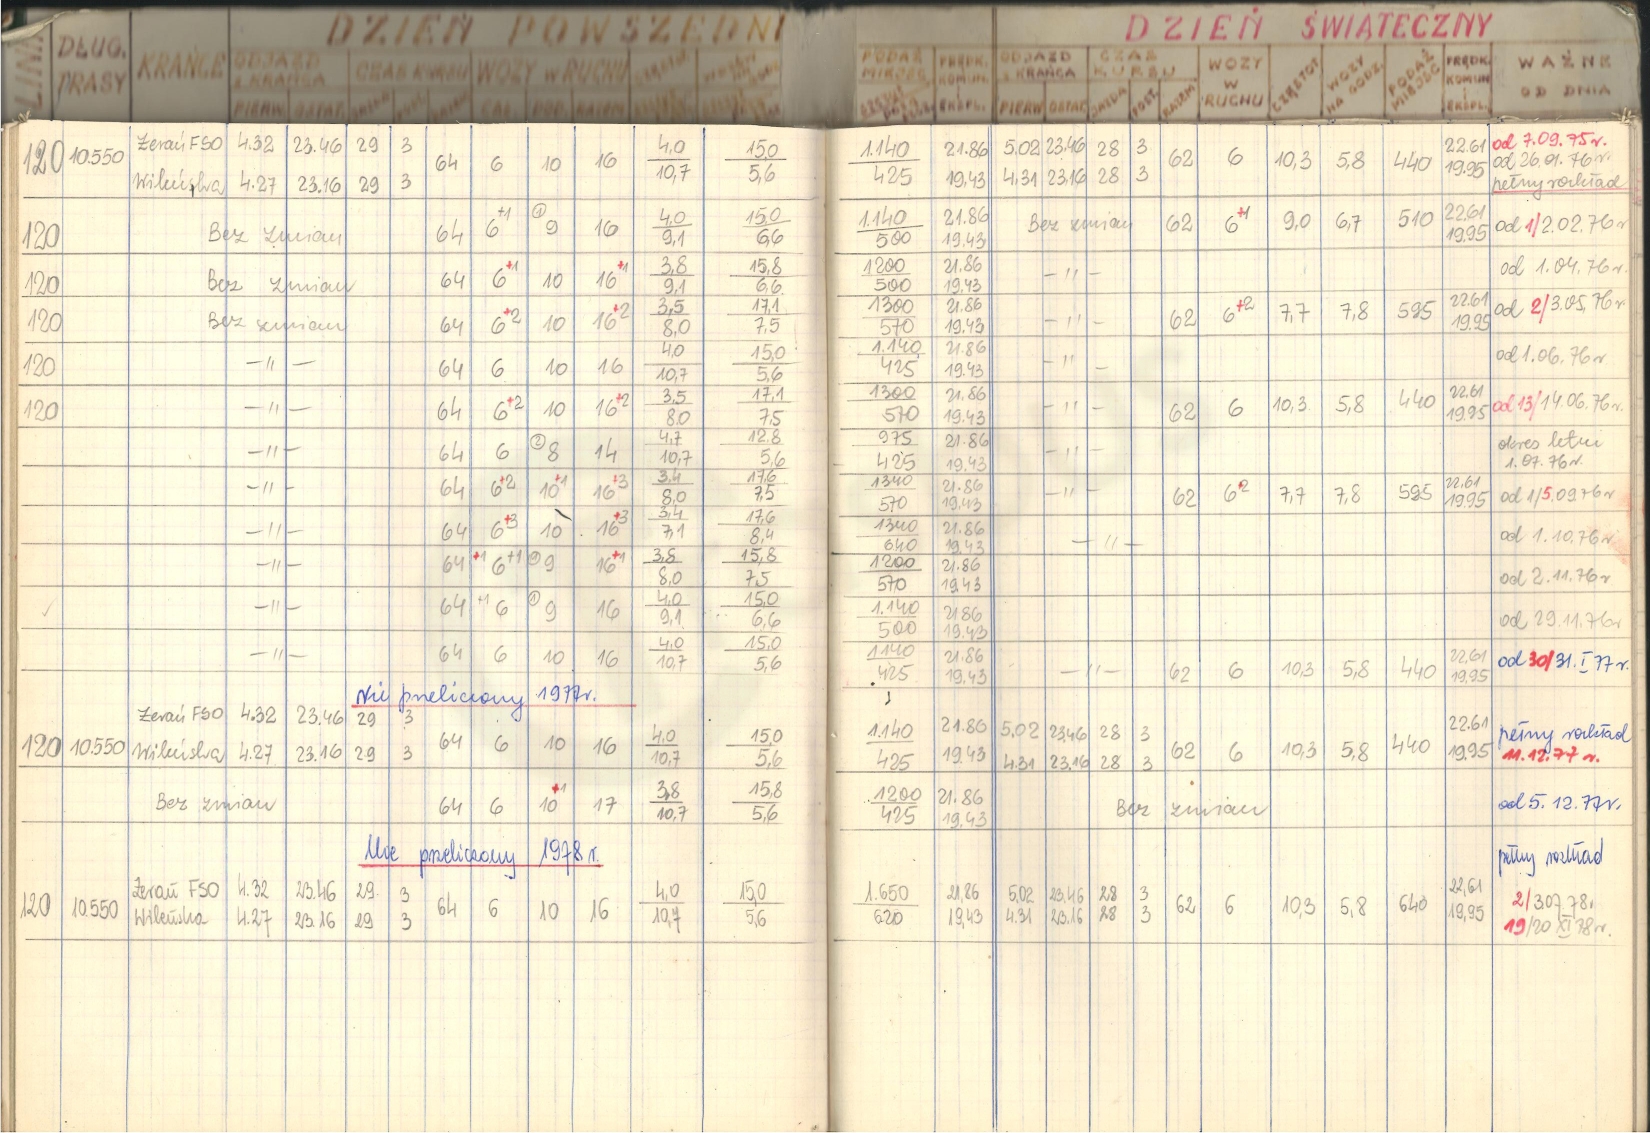 DZIEŃ POWSZEDNI DZIEŃ ŚWIĄTECZNY
LINIA DŁUG. TRASY KRAŃCE ODJAZD Z KRAŃCA CZAS KURSU WOZY W RUCHU PODAŻ MIEJSC PRĘDK. KOMUN. I EKSPL. ODJAZD Z KRAŃCA CZAS KURSU WOZY W RUCHU CZĘSTOT. WOZY NA GODZ. PODAŻ MIEJSC PRĘDK. KOMUN. I EKSPL. WAŻNE OD DNIA
PIERW. OSTAT. JAZDA POST. RAZEM CAŁ. POD. RAZEM PIERW OSTAT. JAZDA POST. RAZEM
120 10.550 Żerań FSO 4.32 23.46 29 3 64 6 10 16 4,0 15,0 1.140 21.86 5.02 23.46 28 3 62 6 10,3 5,8 440 22.61 od 7.09.75 r.
od 26.01.76 r.
Wileńska 4.27 23.16 29 3 10,7 5,6 425 19,43 4.31 23,16 28 3 19.95 pełny rozkład
120 Bez zmian 64 6+1 ① 9 16 4,0 15,0 1.140 21.86 Bez zmian 62 6+1 9,0 6,7 510 22.61 od 1/2.02.76 r
9,1 6,6 500 19.43 19.95
120 Bez zmian 64 6+1 10 16+1 3,8 15,8 1200 21.86 -"- od 1.04.76 r.
9,1 6,6 500 19.43
120 Bez zmian 64 6+2 10 16+2 3,5 17,1 1300 21.86 -"- 62 6+2 7,7 7,8 595 22.61 od 2/3.05.76 r
8,0 7,5 570 19.43 19.95
120 -"- 64 6 10 16 4,0 15,0 1.140 21.86 -"- od 1.06.76 r
10,7 5,6 425 19.43
120 -"- 64 6+2 10 16+2 3,5 17,1 1300 21.86 -"- 62 6 10,3 5,8 440 22.61 od 13/14.06.76 r.
8.0 7,5 570 19.43 19.95
-"- 64 6 ② 8 14 4,7 12.8 975 21.86 okres letni
10,7 5,6 425 19.43 1.07.76 r.
-"- 64 6+2 10+1 16+3 3,4 17,6 1340 21.86 -"- 62 6+2 7,7 7,8 595 22.61 od 1/5.09.76 r
8,0 7,5 570 19.43 19.95
-"- 64 6+3 10 16+3 3,4 17,6 1340 21.86 -"- od 1.10.76 r
7,1 8,4 640 19.43
-"- 64 +1 6+1 ① 9 16+1 3,8 15,8 1200 21.86 od 2.11.76 r
8,0 7,5 570 19.43
-"- 64 +1 6 ① 9 16 4,0 15,0 1.140 21.86 od 29.11.76 r
9,1 6,6 500 19.43
-"- 64 6 10 16 4,0 15,0 1140 21.86 -"- 62 6 10,3 5,8 440 22,61 od 30/31.I 77 r.
10,7 5,6 425 19.43 19,95
Nie przeliczony 1977 r.
Żerań FSO 4.32 23.46 29 3
120 10.550 64 6 10 16 4,0 15,0 1.140 21.86 5,02 23,46 28 3 62 6 10,3 5,8 440 22.61 pełny rozkład
Wileńska 4.27 23.16 29 3 10,7 5,6 425 19.43 4.31 23,16 28 3 19.95 11.12.77 r.
Bez zmian 64 6 10+1 17 3,8 15,8 1200 21.86 Bez zmian od 5.12.77 r.
10,7 5,6 425 19,43
Nie przeliczony 1978 r.
pełny rozkład
Żerań FSO 4.32 23.46 29 3 4,0 15,0 1.650 21,86 5,02 23,46 28 3 22,61 2/3.07.78 r
120 10.550 64 6 10 16 62 6 10,3 5,8 640
Wileńska 4.27 23.16 29 3 10,7 5.6 620 19,43 4.31 23.16 28 3 19,95 19/20 XI 78 r.